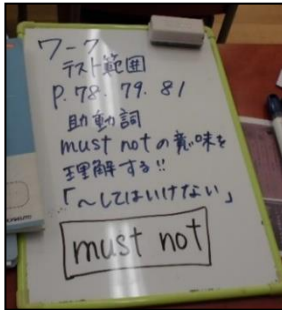 ワーク
テスト範囲
P.78.79.81
助動詞
must notの意味を
理解する!!
「〜してはいけない」
must not